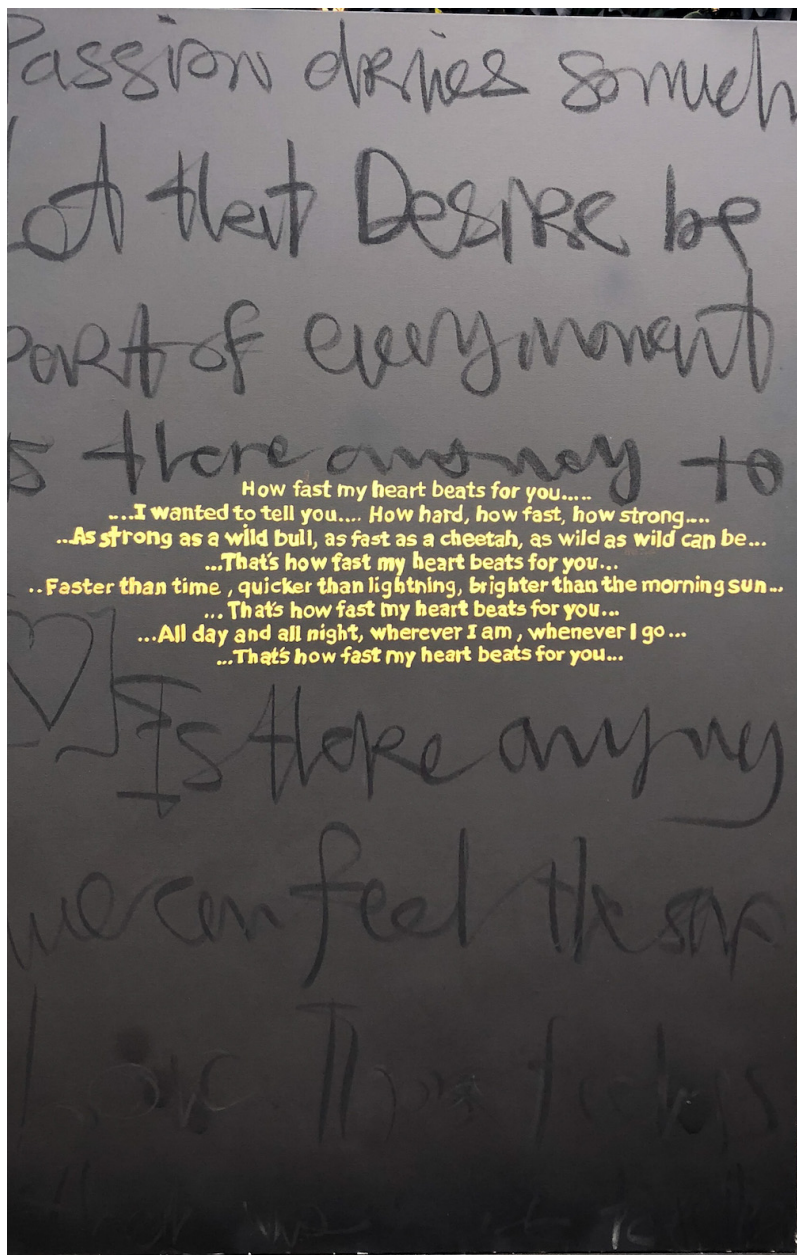 Passion drives so much
that Desire be
part of every moment
is there any way to
How fast my heart beats for you.....
....I wanted to tell you.... How hard, how fast, how strong....
...As strong as a wild bull, as fast as a cheetah, as wild as wild can be...
...That's how fast my heart beats for you...
..Faster than time , quicker than lightning, brighter than the morning sun...
... That's how fast my heart beats for you...
...All day and all night, wherever I am , whenever I go...
...That's how fast my heart beats for you...
Is there any way
we can feel the